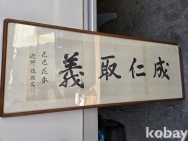 成仁取義
己巳花春
kobay